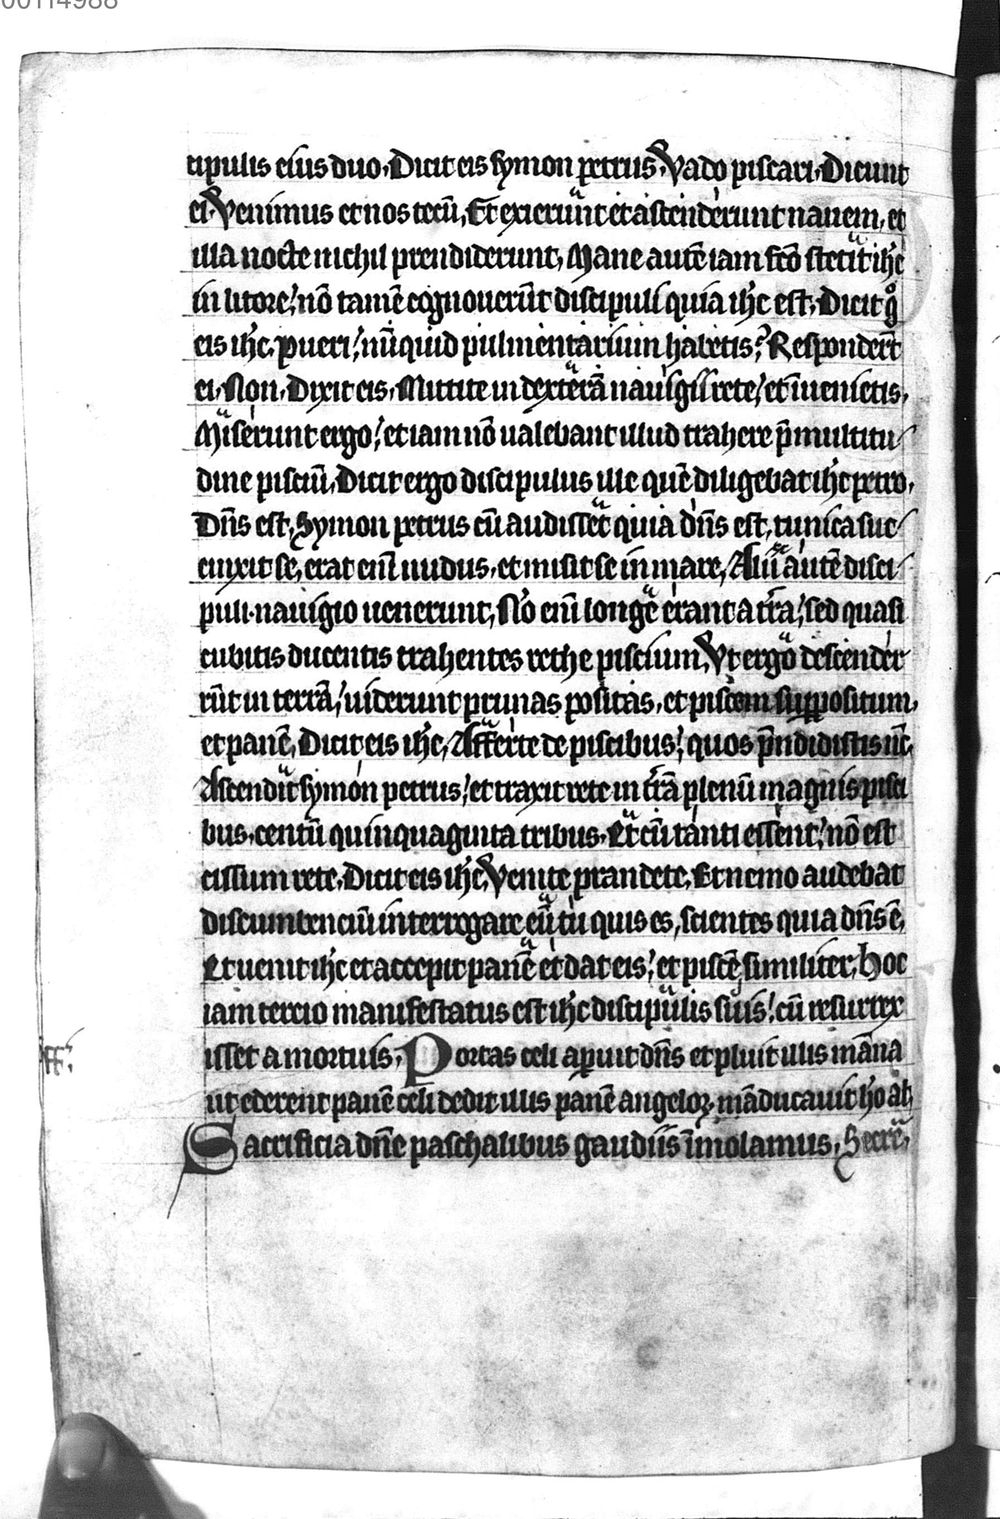 00114988
cipulis eius duo. Dicit eis symon petrus. Vado piscari. Dicunt
ei. Venimus et nos tecū. Et exierunt et ascenderunt nauem. et
illa nocte nichil prendiderunt. Mane autē iam fcō stetit ihc
in litore. nō tamē cognouerūt discipuli quia ihc est. Dicit gͦ
eis ihc. pueri. nūquid pulmentarium habetis. Responderūt
ei. Non. Dixit eis. Mittite in dexterā nauigii rete. et īuenietis.
Miserunt ergo. et iam nō ualebant illud trahere p̄ multitu
dine pisciū. Dicit ergo discipulus ille quē diligebat ihc petro.
Dn̄s est. Symon petrus cū audisset quia dn̄s est. tunica suc
cinxit se. erat enī nudus. et misit se in mare. Alii autē disci
puli. nauigio uenerunt. Nō enī longe erant a tr̄a. sed quasi
cubitis ducentis trahentes rethe piscium. Vt ergo descende
rūt in terrā. uiderunt prunas positas. et piscem suppositum.
et panē. Dicit eis ihc. Afferte de piscibus. quos p̄ndidistis nc̄.
Ascendit symon petrus. et traxit rete in tr̄ā plenū magnis pisci
bus. centū quinquaginta tribus. Et cū tanti essent. nō est
cissum rete. Dicit eis ihc. Venite prandete. Et nemo audebat
discumbenciū interrogare eū tu quis es. scientes quia dn̄s ē.
Et uenit ihc et accepit panē et dat eis. et piscē similiter. Hoc
iam tercio manifestatus est ihc discipulis suis. cū resurrex
isset a mortuis. Portas celi aperuit dn̄s et pluit illis māna
ut ederent panē celi dedit illis panē angeloꝝ māducauit ho al.
Sacrificia dn̄e paschalibus gaudiis īmolamus. Secrē.